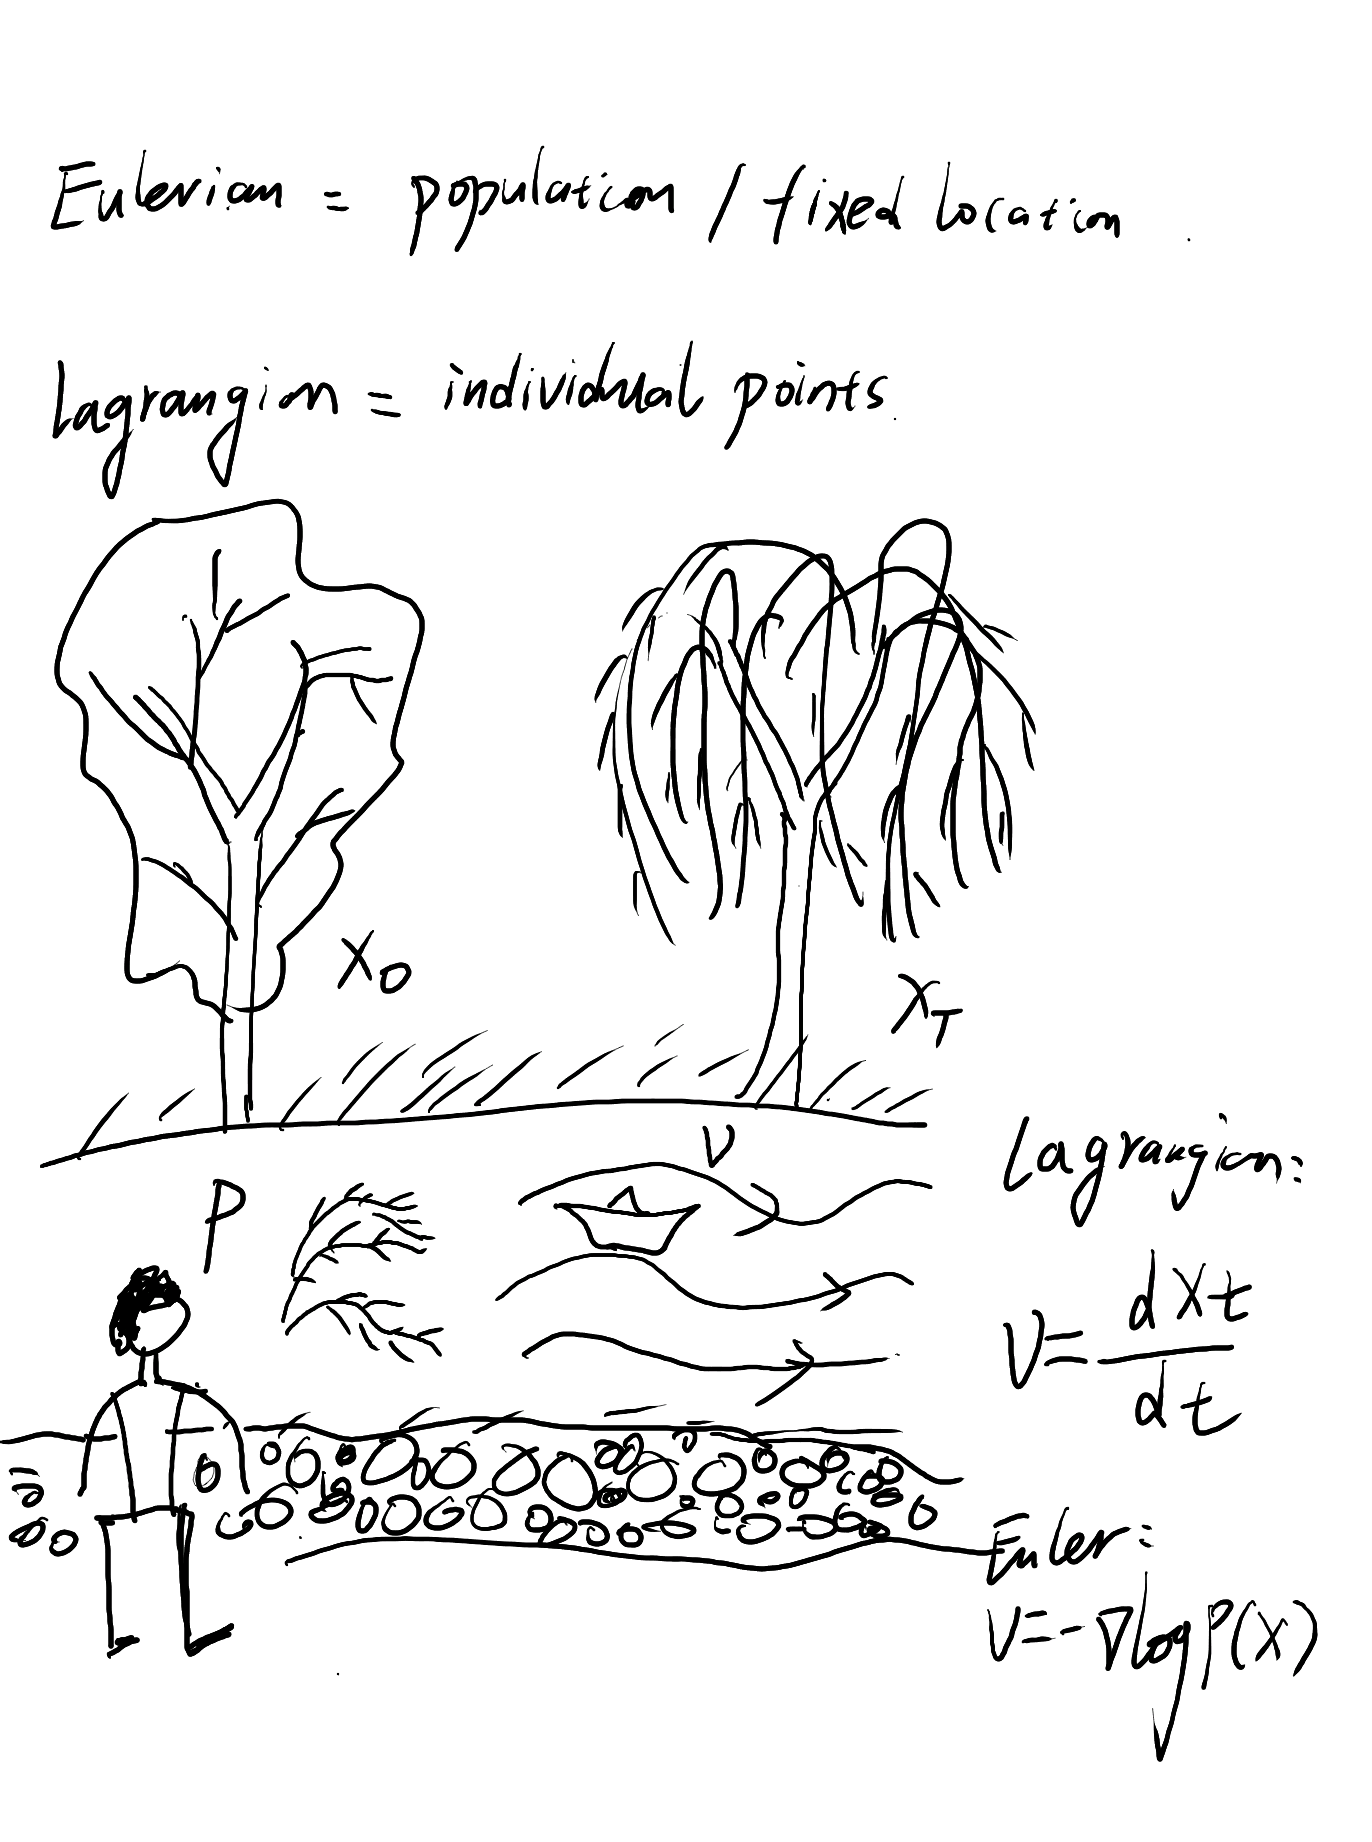 Eulerian = population / fixed location
Lagrangian = individual points
X₀
X_T
V
P
Lagrangian:
V = dXt / dt
Euler:
V = -∇logP(X)